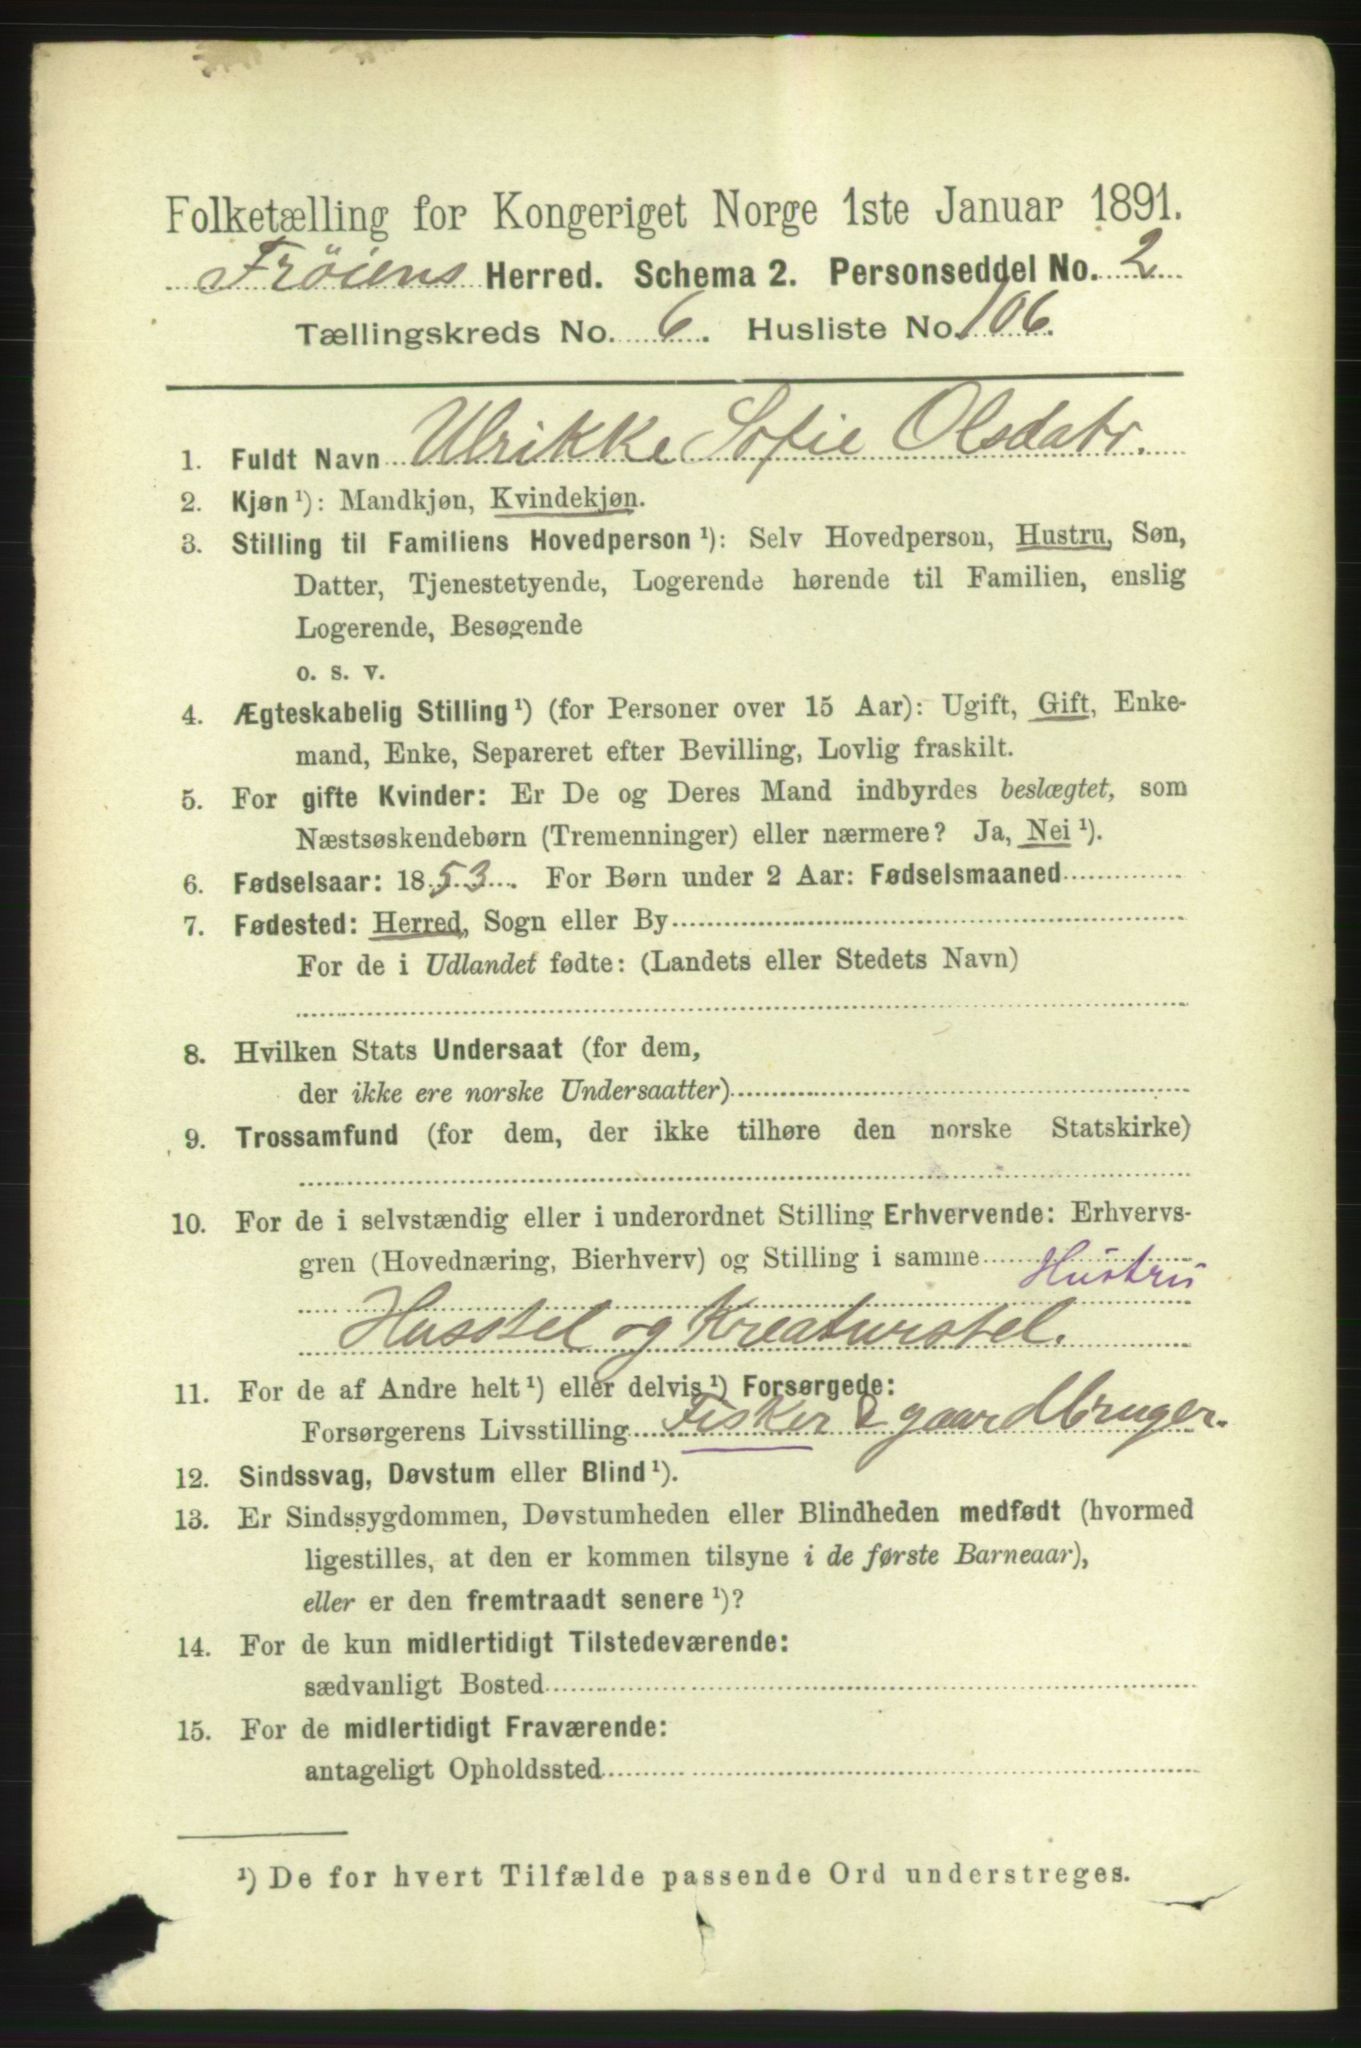 Folketælling for Kongeriget Norge 1ste Januar 1891.
Frøiens Herred. Schema 2. Personseddel No. 2
Tællingskreds No. 6. Husliste No. 106.
1. Fuldt Navn Ulrikke Sofie Olsdatr.
2. Kjøn ¹): Mandkjøn, Kvindekjøn.
3. Stilling til Familiens Hovedperson ¹): Selv Hovedperson, Hustru, Søn,
Datter, Tjenestetyende, Logerende hørende til Familien, enslig
Logerende, Besøgende
o. s. v.
4. Ægteskabelig Stilling ¹) (for Personer over 15 Aar): Ugift, Gift, Enke-
mand, Enke, Separeret efter Bevilling, Lovlig fraskilt.
5. For gifte Kvinder: Er De og Deres Mand indbyrdes beslægtet, som
Næstsøskendebørn (Tremenninger) eller nærmere? Ja, Nei ¹).
6. Fødselsaar: 1853. For Børn under 2 Aar: Fødselsmaaned
7. Fødested: Herred, Sogn eller By
For de i Udlandet fødte: (Landets eller Stedets Navn)
8. Hvilken Stats Undersaat (for dem,
der ikke ere norske Undersaatter)
9. Trossamfund (for dem, der ikke tilhøre den norske Statskirke)
10. For de i selvstændig eller i underordnet Stilling Erhvervende: Erhvervs-
gren (Hovednæring, Bierhverv) og Stilling i samme Hustru
Husstel og Kreaturstel.
11. For de af Andre helt ¹) eller delvis ¹) Forsørgede:
Forsørgerens Livsstilling Fisker & gaardbruger.
12. Sindssvag, Døvstum eller Blind ¹).
13. Er Sindssygdommen, Døvstumheden eller Blindheden medfødt (hvormed
ligestilles, at den er kommen tilsyne i de første Barneaar),
eller er den fremtraadt senere ¹)?
14. For de kun midlertidigt Tilstedeværende:
sædvanligt Bosted
15. For de midlertidigt Fraværende:
antageligt Opholdssted
¹) De for hvert Tilfælde passende Ord understreges.